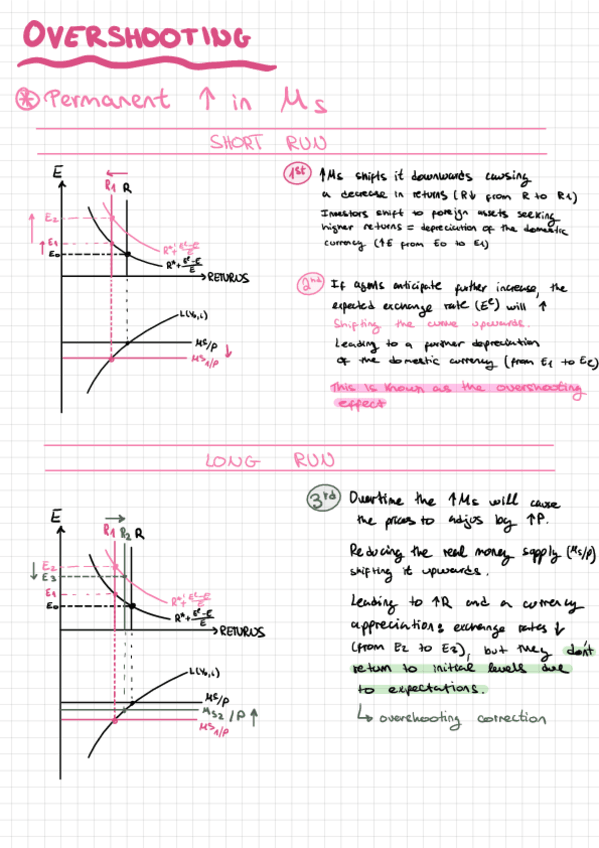 OVERSHOOTING
* Permanent ↑ in Ms
SHORT RUN
E
R1 R
E2
↑ E1
E0
R*+ E^e-E/E
R*+ E^e-E/E
RETURUS
L(Y0,i)
Ms/P
Ms1/P ↓
1st
↑Ms shifts it downwards causing
a decrease in returns (R↓ from R to R1)
Investors shift to foreign assets seeking
higher returns = depreciation of the domestic
currency (↑E from E0 to E1)
2nd
If agents anticipate further increase, the
expected exchange rate (E^e) will ↑
Shifting the curve upwards.
Leading to a further depreciation
of the domestic currency (from E1 to E2)
This is known as the overshooting
effect
LONG RUN
E
R1 R2 R
E2
↓ E3
E1
E0
R*+ E^e-E/E
R*+ E^e-E/E
RETURUS
L(Y0,i)
Ms/P
Ms2/P ↑
Ms1/P
3rd
Overtime the ↑Ms will cause
the prices to adjus by ↑P.
Reducing the real money supply (Ms/P)
shifting it upwards.
Leading to ↑R and a currency
appreciation: exchange rates ↓
(from E2 to E3), but they don't
return to initial levels due
to expectations.
↳ overshooting correction